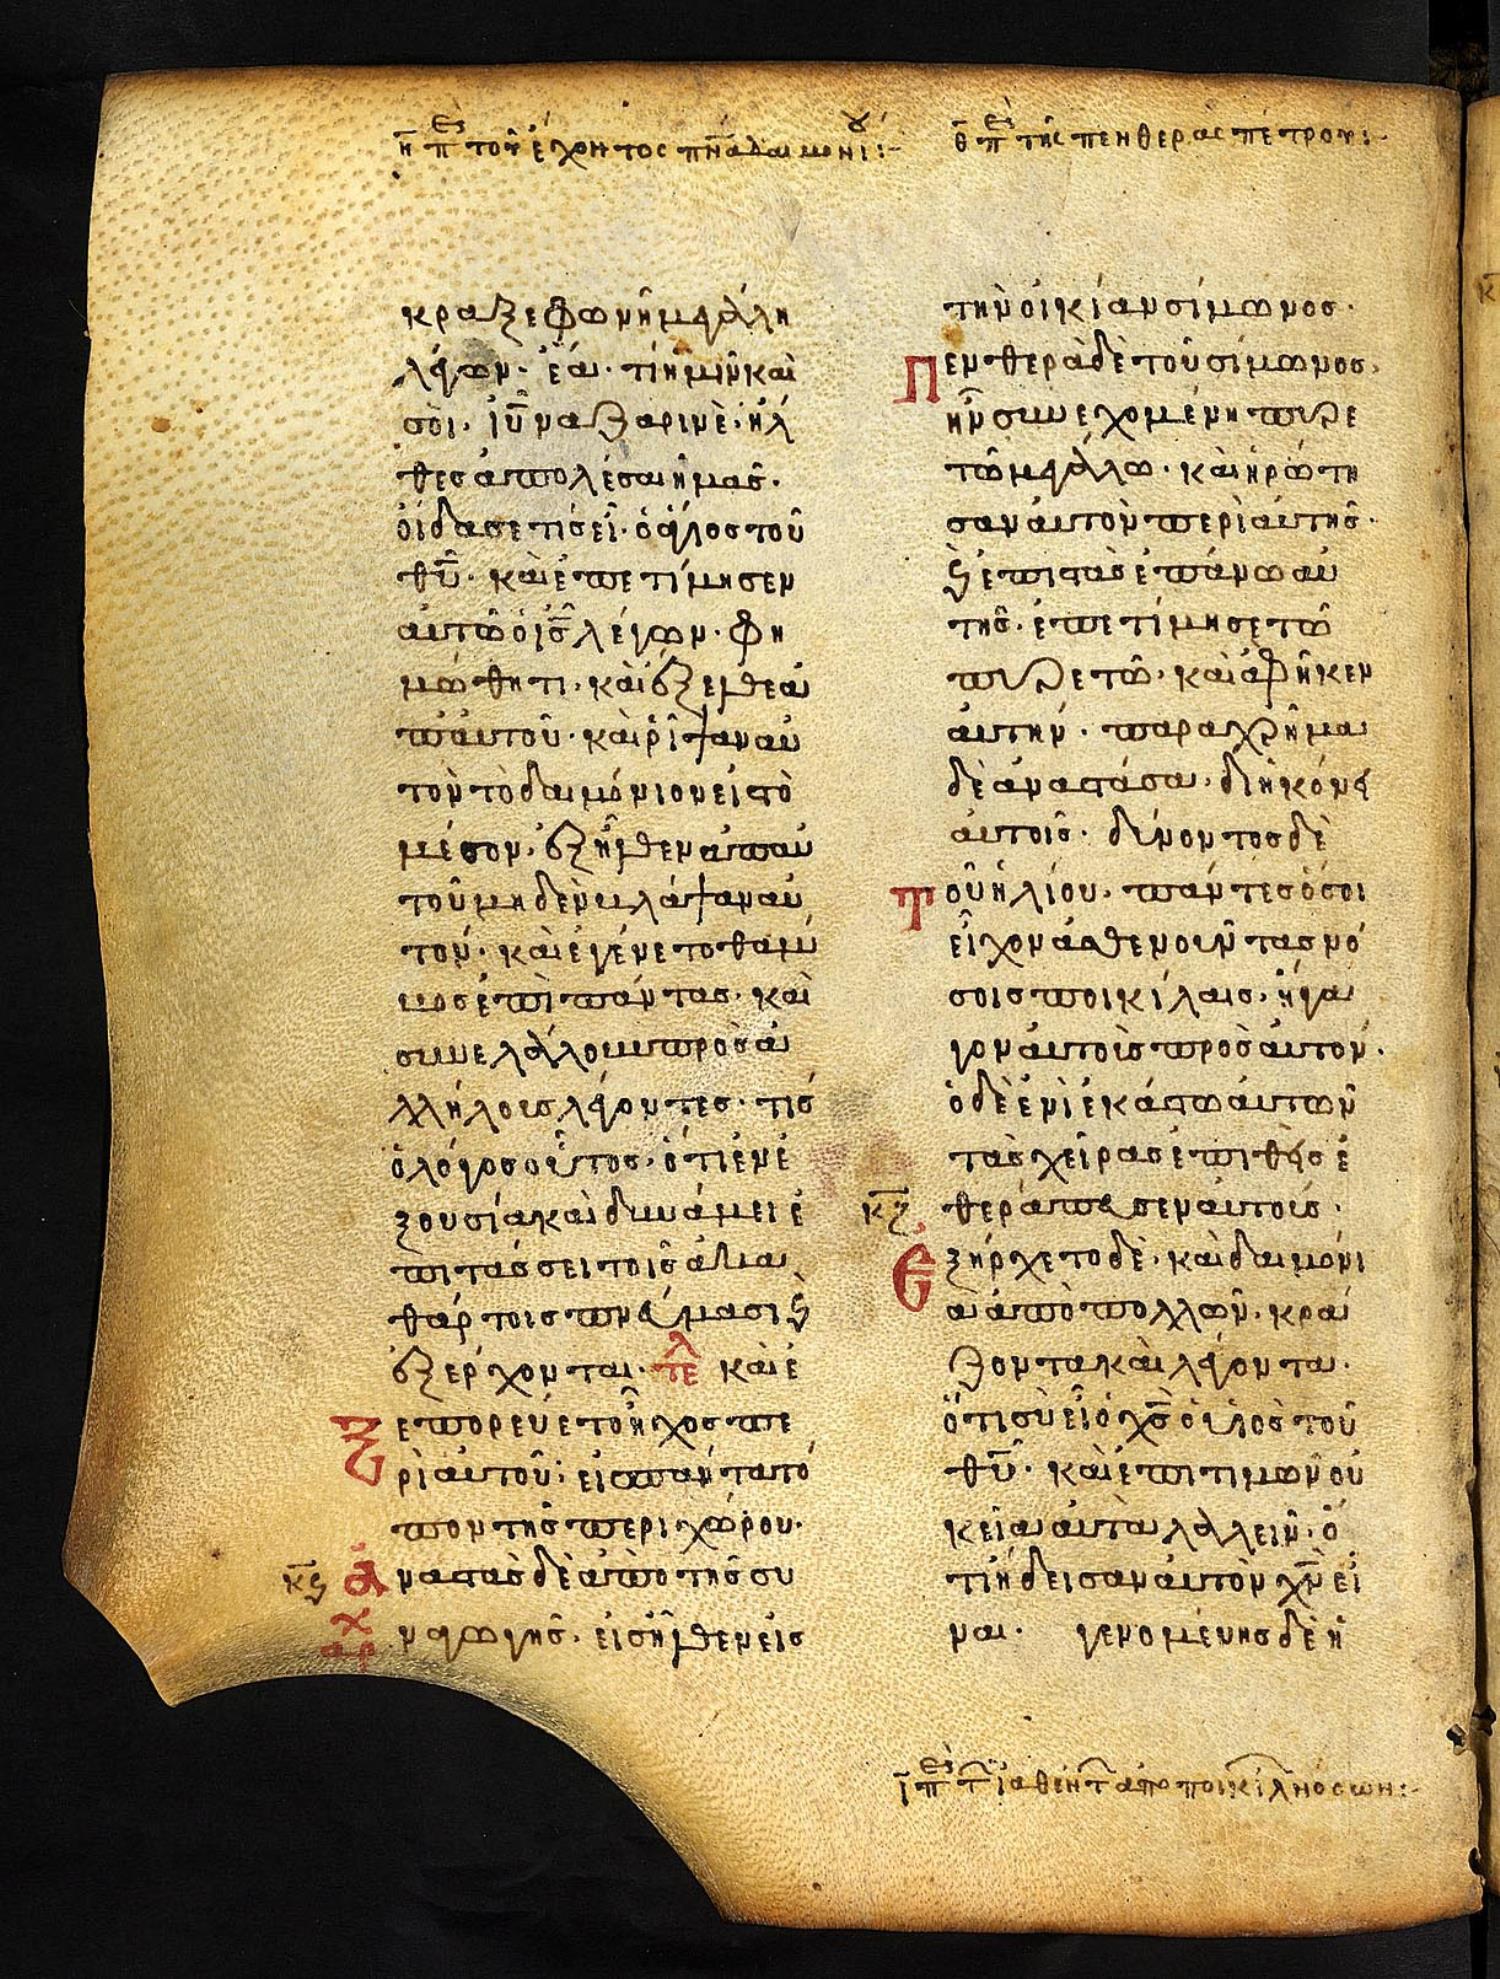 η π̅ε̅ρ̅ τοῦ ἔχοντος πν̅α δαιμονίου:-
θ π̅ε̅ρ̅ τῆς πενθερὰς πέτρου:-
κραξε φωνῆ μεγάλη
λέγων· ἔα· τί ἡμῖν καὶ
σοὶ· ἰυ̅ ναζαρινὲ· ἦλ
θες ἀπολέσαι ἡμᾶς·
οἶδα σε τίς εἶ· ὁ ἅγιος τοῦ
θυ̅· καὶ ἐπετίμησεν
αὐτῶ ὁ ις̅ λέγων· φη
μώθητι· καὶ ἔξελθε ἀ
π' αὐτοῦ· καὶ ῥίψαν αὐ
τὸν τὸ δαιμόνιον εἰς τὸ
μέσον· ἐξῆλθεν ἀπ' αὐ
τοῦ μηδὲν βλάψαν αὐ
τόν· καὶ ἐγένετο θάμ
βος ἐπὶ πάντας· καὶ
συνελάλουν πρὸς ἀ
λλήλους λέγοντες· τίς
ὁ λόγος οὗτος· ὅτι ἐν ἐ
ξουσία καὶ δυνάμει ἐ
πιτάσσει τοῖς ἀκα
θάρτοις πνεύμασι ϗ
ἐξέρχονται· τε^λ καὶ ἐ
ξεπορεύετο ἦχος πε
ρὶ αὐτοῦ· εἰς πάντα τό
πον τῆς περιχώρου·
κϛ̅ ἀναστὰς δὲ ἀπὸ τῆς συ
αρχ ναγωγῆς· εἰσῆλθεν εἰς
τὴν οἰκίαν σίμωνος·
Πενθερὰ δὲ τοῦ σίμωνος·
ἦν συνεχομένη πυρε
τῶ μεγάλω· καὶ ἠρώτη
σαν αὐτὸν περὶ αὐτῆς·
ϗ ἐπιστὰς ἐπάνω αὐ
τῆς· ἐπετίμησε τῶ
πυρετῶ· καὶ ἀφῆκεν
αὐτήν· παραχρῆμα
δὲ ἀναστάσα· διηκόνει
αὐτοῖς· δύνοντος δὲ
Τοῦ ἡλίου· πάντες ὅσοι
εἶχον ἀσθενοῦντας νό
σοις ποικίλαις· ἤγα
γον αὐτοὺς πρὸς αὐτόν·
ὁ δὲ ἑνὶ ἑκάστω αὐτῶν
τὰς χεῖρας ἐπιθεὶς ἐ
κζ̅ θεράπευσεν αὐτούς·
Ἐξήρχετο δὲ· καὶ δαιμόνι
α ἀπὸ πολλῶν· κρά
ζοντα καὶ λέγοντα·
ὅτι σὺ εἶ ὁ χς̅ ὁ υἱὸς τοῦ
θυ̅· καὶ ἐπιτιμῶν οὐ
κ εἴα αὐτὰ λαλεῖν· ὅ
τι ἤδεισαν αὐτὸν χν̅ εἶ
ναι· γενομένης δὲ ἡ
ι π̅ε̅ρ̅ τ̅ ἰαθέντ̅ ἀπὸ ποικίλ̅ νόσων:-